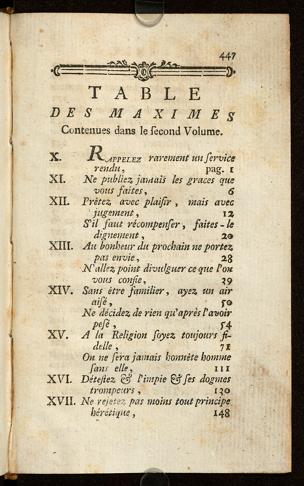 447
TABLE
DES MAXIMES
Contenues dans le ſecond Volume.
X. RAPPELEZ rarement un ſervice
rendu, pag. 1
XI. Ne publiez jamais les graces que
vous faites, 6
XII. Prêtez avec plaiſir, mais avec
jugement, 12
S'il faut récompenſer, faites-le
dignement, 20
XIII. Au bonheur du prochain ne portez
pas envie, 28
N'allez point divulguer ce que l'on
vous confie, 39
XIV. Sans être familier, ayez un air
aiſé, 50
Ne décidez de rien qu'après l'avoir
peſé, 54
XV. A la Religion ſoyez toujours fi-
delle, 71
On ne ſera jamais honnête homme
ſans elle, 111
XVI. Déteſtez & l'impie & ſes dogmes
trompeurs, 130
XVII. Ne rejetez pas moins tout principe
hérétique, 148